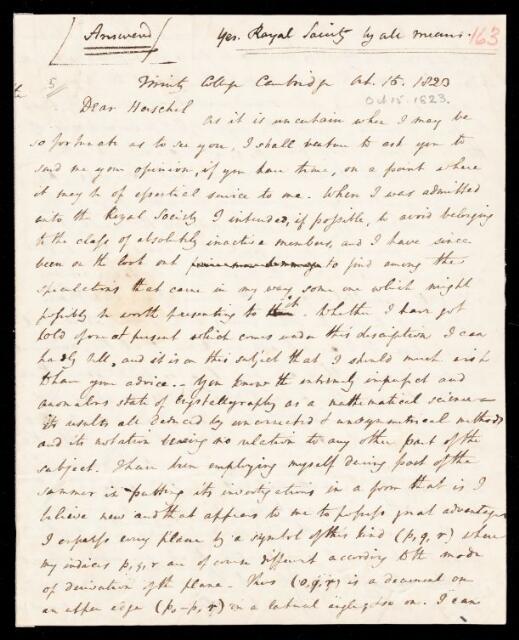 [Answered] Yes. Royal Society by all means. 163
5 Trinity College Cambridge Oct. 15. 1823
Dear Herschel Oct 15. 1823.
As it is uncertain when I may be
so fortunate as to see you, I shall venture to ask you to
send me your opinion, if you have time, on a point where
it may be of essential service to me. When I was admitted
into the Royal Society I intended, if possible, to avoid belonging
to the class of absolutely inactive members, and I have since
been on the look out to find among the
speculations that came in my way some one which might
possibly be worth presenting to it. Whether I have got
hold of one at present which comes under this description I can
hardly tell, and it is on this subject that I should much wish
to have your advice. - You know the extremely imperfect and
anomalous state of Crystallography as a mathematical science -
its results all deduced by unconnected & unsymmetrical methods
and its notation bearing no relation to any other part of the
subject. I have been employing myself during part of the
summer in putting its investigations in a form that is I
believe new and that appears to me to possess great advantages
I express every plane by a symbol of this kind (p, q, r) where
my indices p, q, r are of course different according to the mode
of derivation of the plane. Thus (o, q, r) is a decrement on
an upper edge (p, -p, r) on a lateral angle, & so on. I can